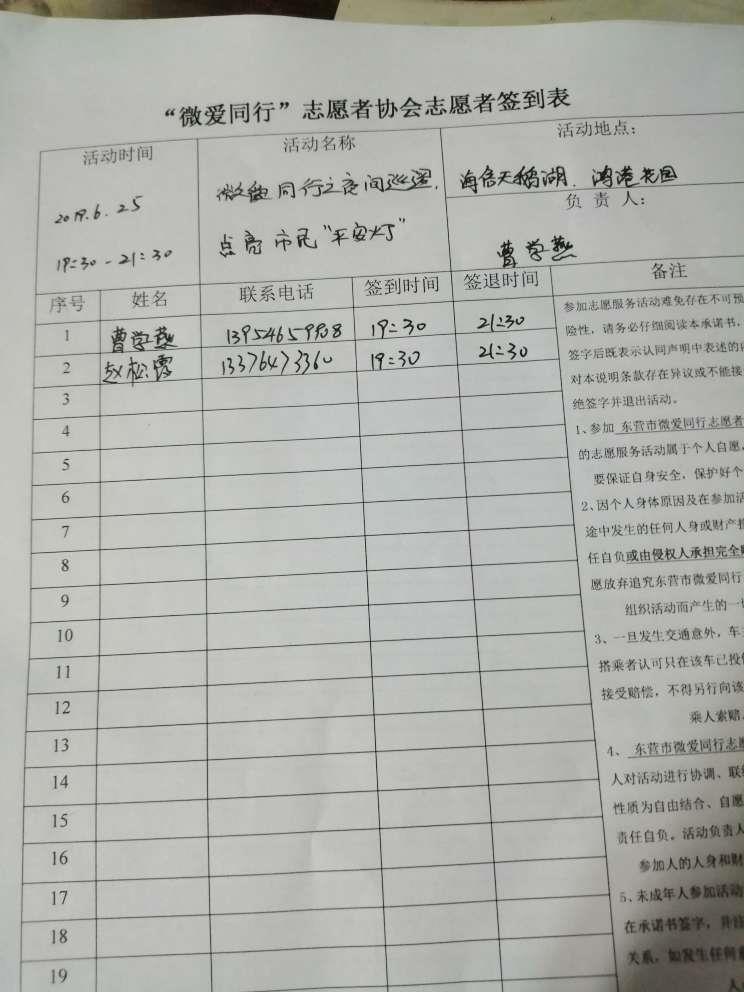 “微爱同行”志愿者协会志愿者签到表
活动时间
2019.6.25
19:30-21:30
活动名称
微爱同行之夜间巡逻,
点亮市民“平安灯”
活动地点:
海信天鹅湖. 鸿港花园
负责人:
曹学燕
序号 姓名 联系电话 签到时间 签退时间 备注
1 曹学燕 13954659908 19:30 21:30
2 赵松露 13376473360 19:30 21:30
3
4
5
6
7
8
9
10
11
12
13
14
15
16
17
18
19
参加志愿服务活动难免存在不可预
险性,请务必仔细阅读本承诺书,
签字后既表示认同声明中表述的
对本说明条款存在异议或不能接
绝签字并退出活动。
1、参加 东营市微爱同行志愿者
的志愿服务活动属于个人自愿,
要保证自身安全,保护好个
2、因个人身体原因及在参加活
途中发生的任何人身或财产损
任自负或由侵权人承担完全
愿放弃追究东营市微爱同行
组织活动而产生的一
3、一旦发生交通意外,车
搭乘者认可只在该车已投
接受赔偿,不得另行向该
乘人索赔
4、 东营市微爱同行志
人对活动进行协调、联
性质为自由结合、自愿
责任自负。活动负责人
参加人的人身和财
5、未成年人参加活动
在承诺书签字,并注
关系,如发生任何
人